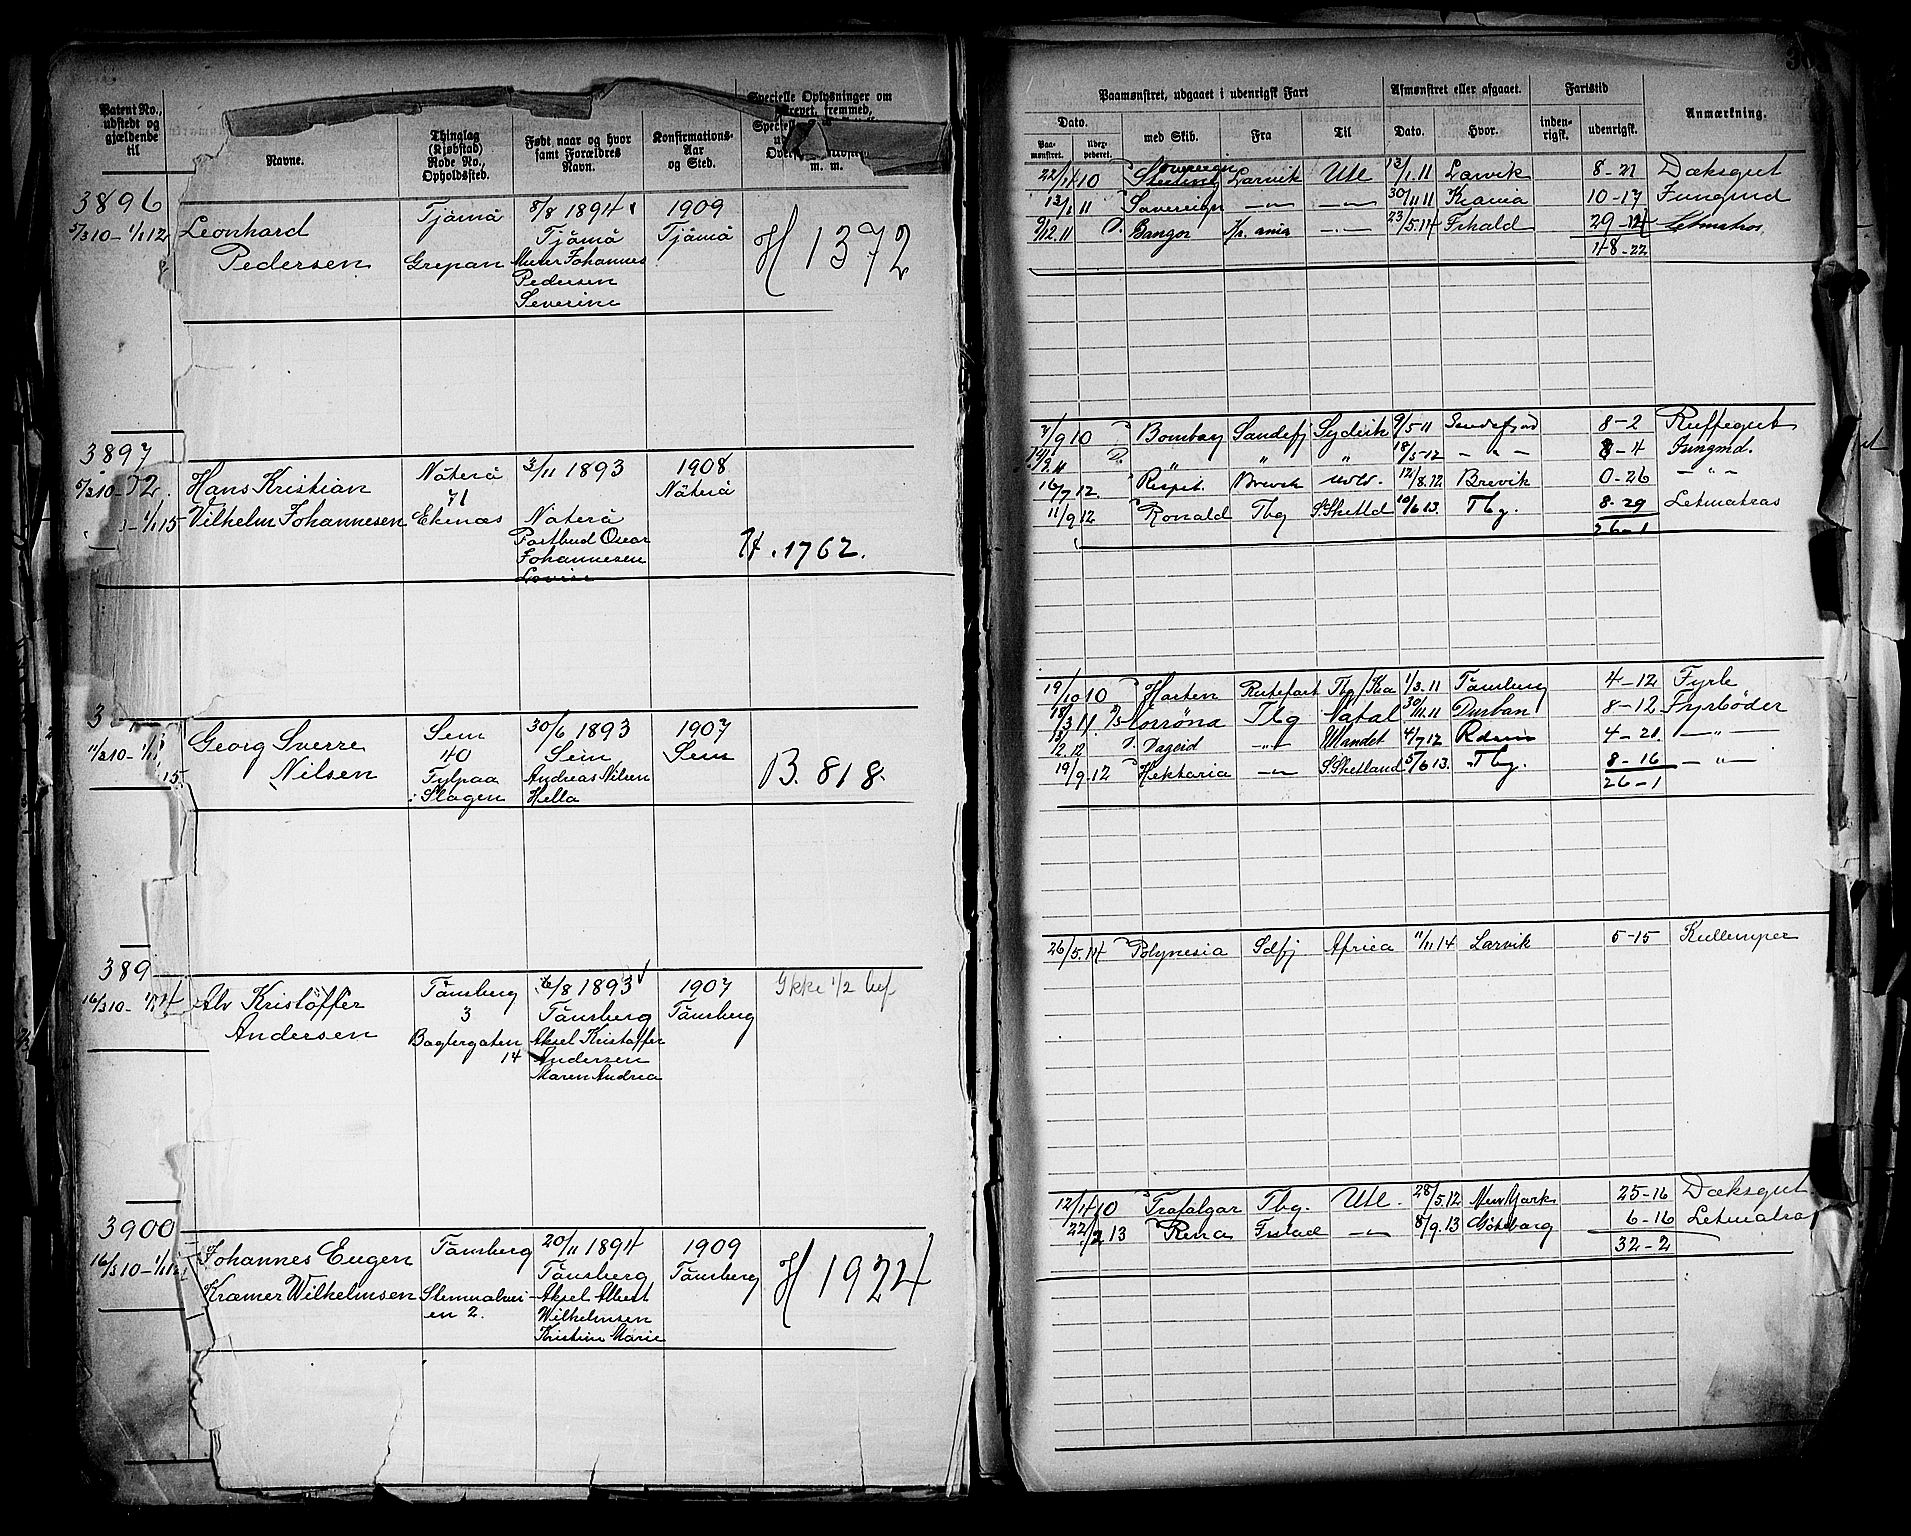 Patent No., udstedt og gjældende til
Navne.
Thinglag (Kjøbstad) Rode No., Opholdssted.
Født, naar og hvor samt Forældres Navn.
Konfirmations-Aar og Sted.
Specielle Oplysninger om
fremmed,
m. m.
3896
5/3 10 - 1/1 12
Leonhard
Pedersen
Tjømø
Grepan
8/8 1894
Tjømø
Murer Johannes
Pedersen
Severine
1909
Tjømø
H 1372
3897
Hans Kristian
Vilhelm Johannesen
Nøterø
71
Ekenæs
3/11 1893
Nøterø
Postbud Oscar
Johannesen
1908
Nøterø
H. 1762.
3
Georg Sverre
Nilsen
Sem
40
Fylpaa
i Slagen
30/6 1893
Sem
Andreas Nilsen
Hella
1907
Sem
B. 818
389
16/3 10
Alv Kristoffer
Andersen
Tønsberg
3
Bagergaten
14
1893
Tønsberg
Aksel Kristoffer
Andersen
Maren Andrea
1907
Tønsberg
Ikke 1/2 bef
3900
16/3 10
Johannes Eugen
Kræmer Wilhelmsen
Tønsberg
2.
20/11 1894
Tønsberg
Aksel Albert
Wilhelmsen
Kristine Marie
1909
Tønsberg
H 1924
Paamønstret, udgaaet i udenrigsk Fart
Afmønstret eller afgaaet.
Fartstid
Anmærkning.
Dato.
Paamønstret.
med Skib.
Fra
Til
Dato.
Hvor.
indenrigsk.
udenrigsk.
22/4 10 Sovereign Larvik Utl 13/1 11 Larvik 8-21 Dæksgut
13/1 11 Sovereign -"- -"- 30/11 11 Krania 10-17 Jungmd
9/12 11 D. Bangor Kr.ania -"- 23/5 14 Frhald 29-14 Letmatros.
48-22
7/9 10 Bombay Sandefj Sydisk 9/5 11 Sandefjord 8-2 Ruffegut
D. " " " 18/5 12 - " - 8-4 Jungmd.
16/7 12. Respit Brevik 12/8.12 Brevik 0-26 -"-
11/9 12 Ronald Tbg S.Shetld 10/6 13. Tbg. 8-29 Letmatros
26-1
19/10 10 Horten Rutefart Tbg/Kra 1/3.11 Tønsberg 4-12 Fyrb
18/3 11. Norrøna Tbg Natal 30/11 11 Durban 8-12 Fyrbøder
2.12 D. Dageid -"- Mandet 4/7 12 4-21 -"-
19/9.12 Hektoria -"- S.Shetland 5/6 13. Tbg. 8-16 -"-
26-1
26/5.14 Polynesia Sdfj Africa 11/11 14 Larvik 5-15 Kullemper
12/4 10 Trafalgar Tbg. Utl. 28/5.12 New York 25-16 Dæksgut
22/2 13 Rena Frstad -"- 8/9.13 Gøteborg 6-16 Letmatro
32-2